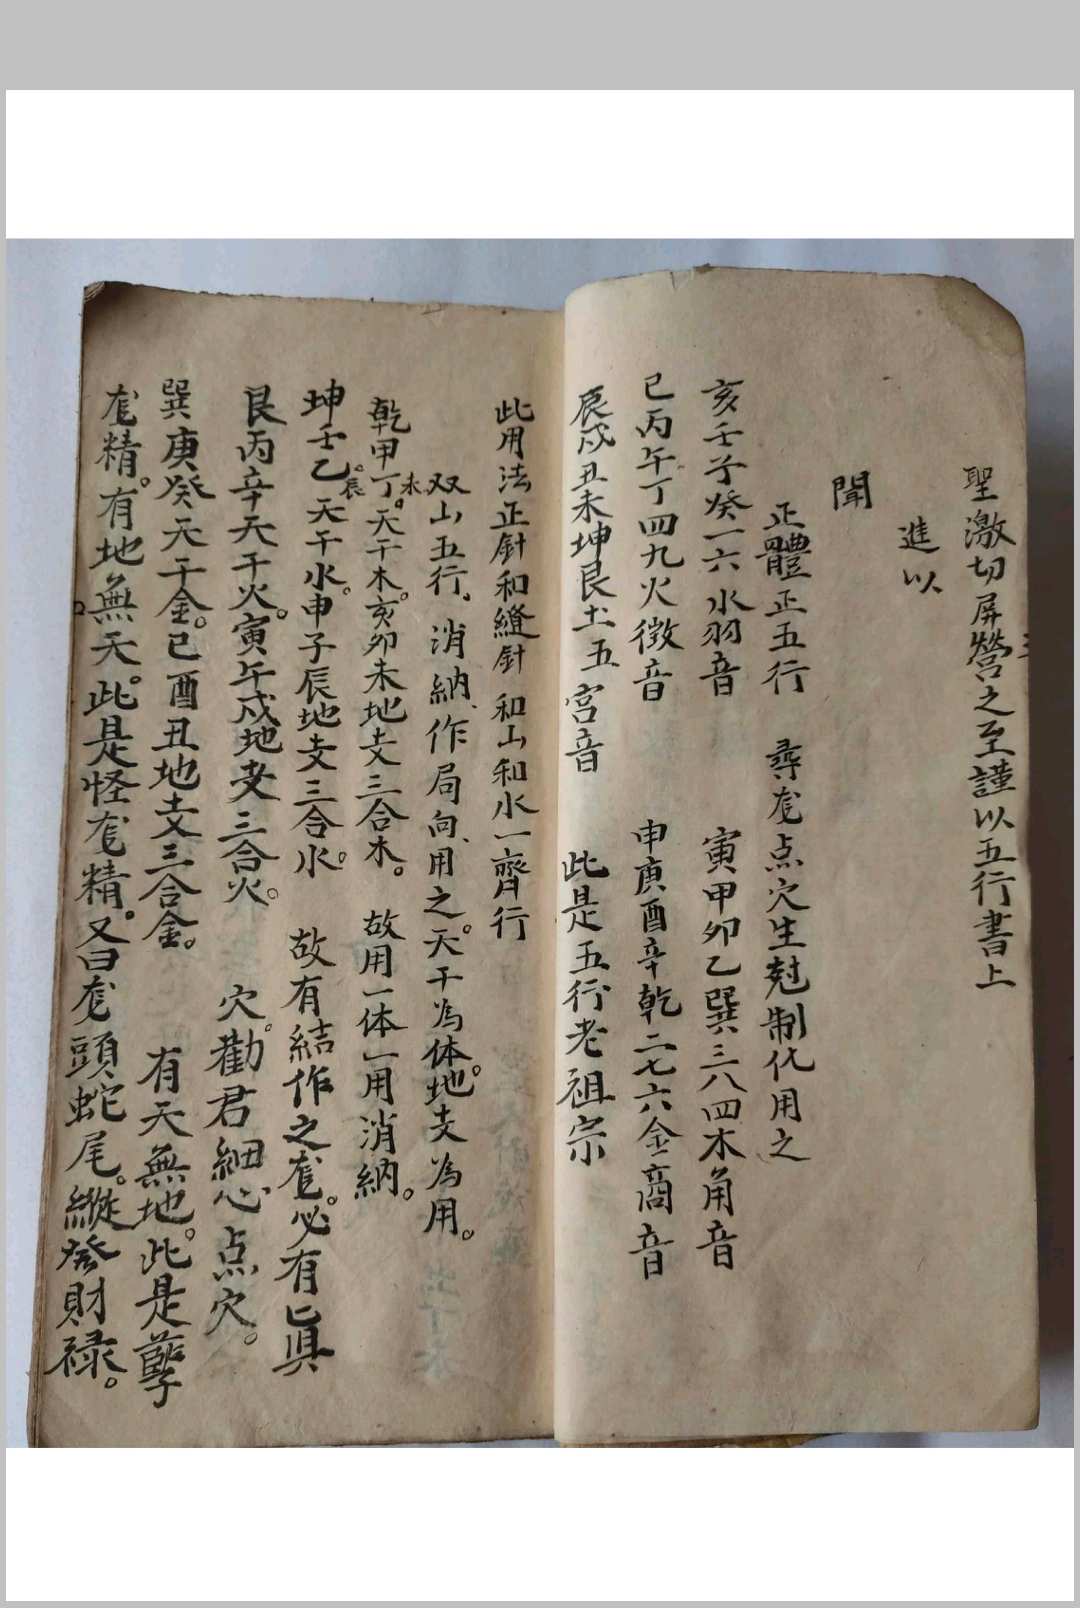 聖激切屏營之至謹以五行書上
進以
聞
正體正五行　尋龙点穴生尅制化用之
亥壬子癸一六水羽音　寅甲卯乙巽三八四木角音
巳丙午丁四九火徵音　申庚酉辛乾二七六金商音
辰戍丑未坤艮土五宮音　此是五行老祖宗
此用法正針和縫針和山和水一齊行
双山五行。消納、作局向、用之。天干為体。地支為用。
乾甲丁。未天干木。亥卯未地支三合木。　故用一体一用消納。
坤壬乙。辰天干水。申子辰地支三合水。　故有結作之龙。必有眞
艮丙辛天干火。寅午戍地支三合火。　穴。勸君細心点穴。
巽庚癸天干金。巳酉丑地支三合金。　有天無地。此是孽
龙精。有地無天。此是怪龙精。又曰龙頭蛇尾。縱發財禄。